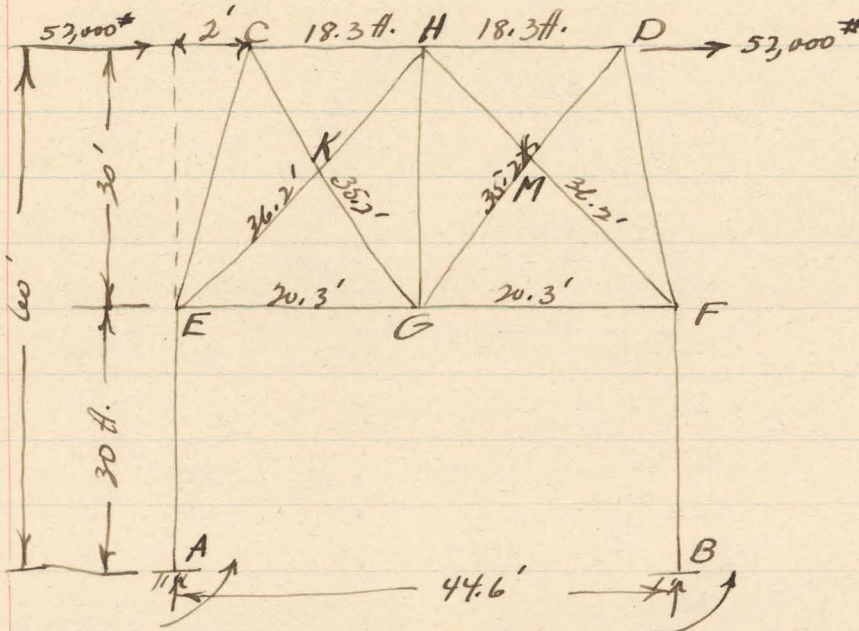 52,000# 2' C 18.3 ft. H 18.3 ft. D 52,000#
30'
K
36.2' 35.2' 35.2' M 36.2'
60'
20.3' 20.3'
E G F
30 ft.
A B
44.6'